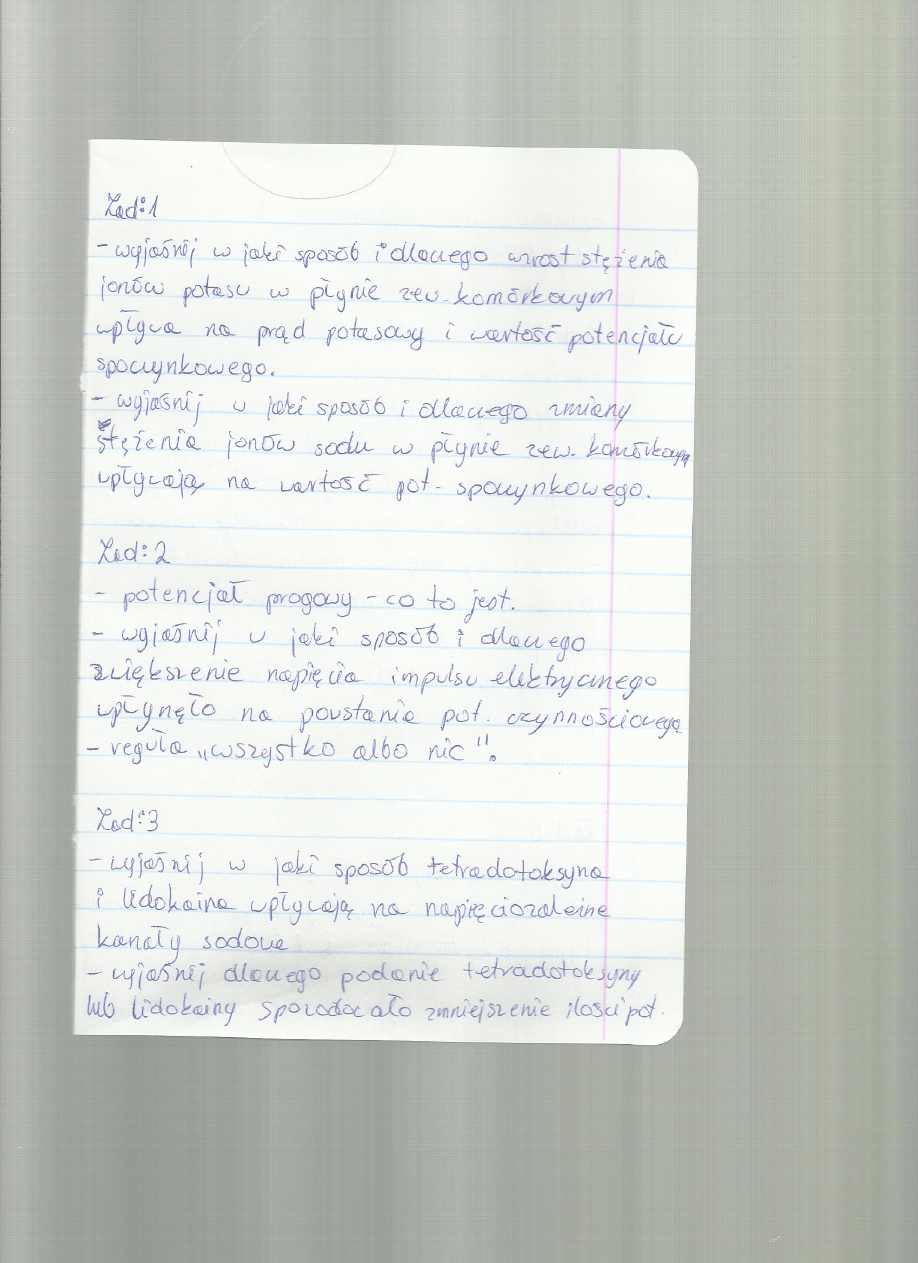 Zad:1
- wyjaśnij w jaki sposób i dlaczego wzrost stężenia
jonów potasu w płynie zew. komórkowym
wpływa na prąd potasowy i wartość potencjału
spoczynkowego.
- wyjaśnij w jaki sposób i dlaczego zmiany
stężenia jonów sodu w płynie zew. komórkowym
wpływają na wartość pot. spoczynkowego.
Zad:2
- potencjał progowy - co to jest.
- wyjaśnij w jaki sposób i dlaczego
zwiększenie napięcia impulsu elektrycznego
wpłynęło na powstanie pot. czynnościowego
- reguła "wszystko albo nic".
Zad:3
- wyjaśnij w jaki sposób tetradotoksyna
i lidokaina wpływają na napięciozależne
kanały sodowe
- wyjaśnij dlaczego podanie tetradotoksyny
lub lidokainy spowodowało zmniejszenie ilości pot.